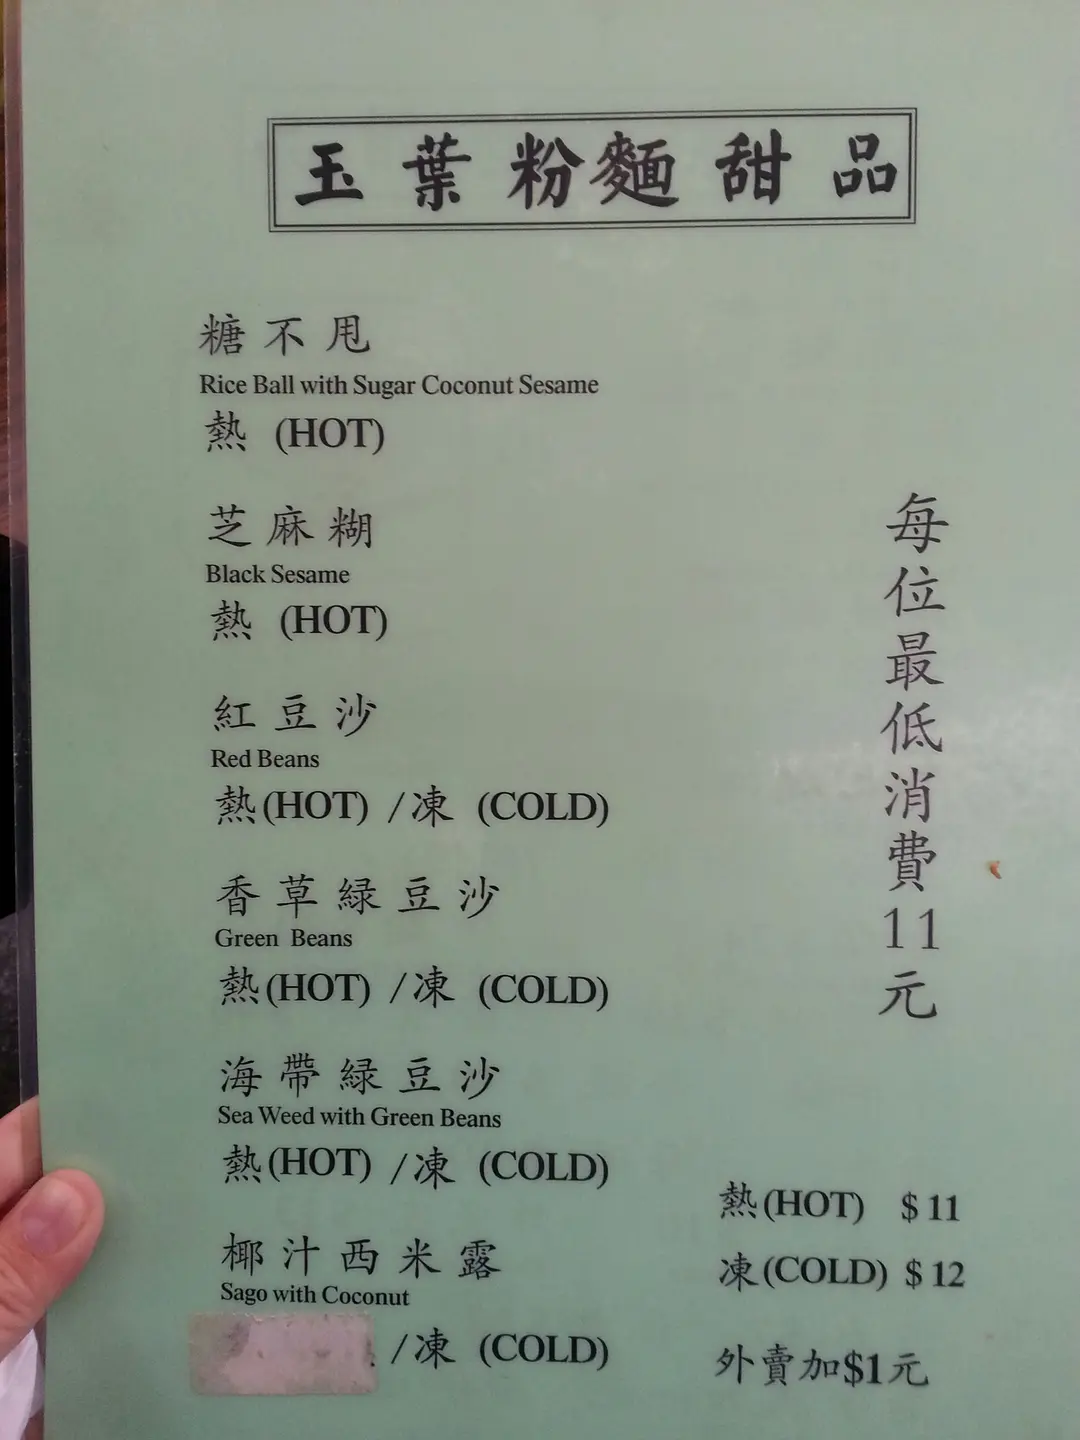 玉葉粉麵甜品
糖不甩
Rice Ball with Sugar Coconut Sesame
熱 (HOT)
芝麻糊
Black Sesame
熱 (HOT)
紅豆沙
Red Beans
熱(HOT) /凍 (COLD)
香草緑豆沙
Green Beans
熱(HOT) /凍 (COLD)
海帶緑豆沙
Sea Weed with Green Beans
熱(HOT) /凍 (COLD)
椰汁西米露
Sago with Coconut
/凍 (COLD)
每位最低消費11元
熱(HOT) $11
凍(COLD) $12
外賣加$1元